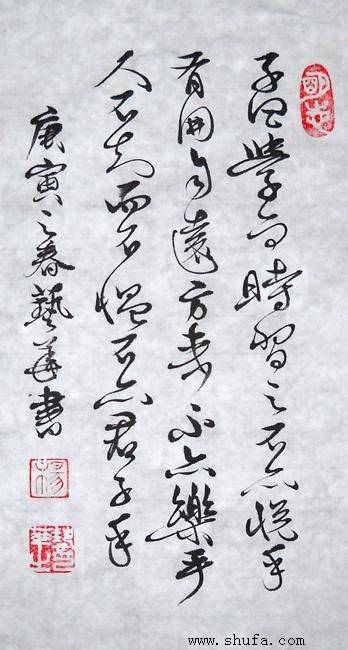 子曰學而時習之不亦悦乎
有朋自遠方来不亦樂乎
人不知而不愠不亦君子乎
庚寅之春藝華書
楊
www.shufa.com